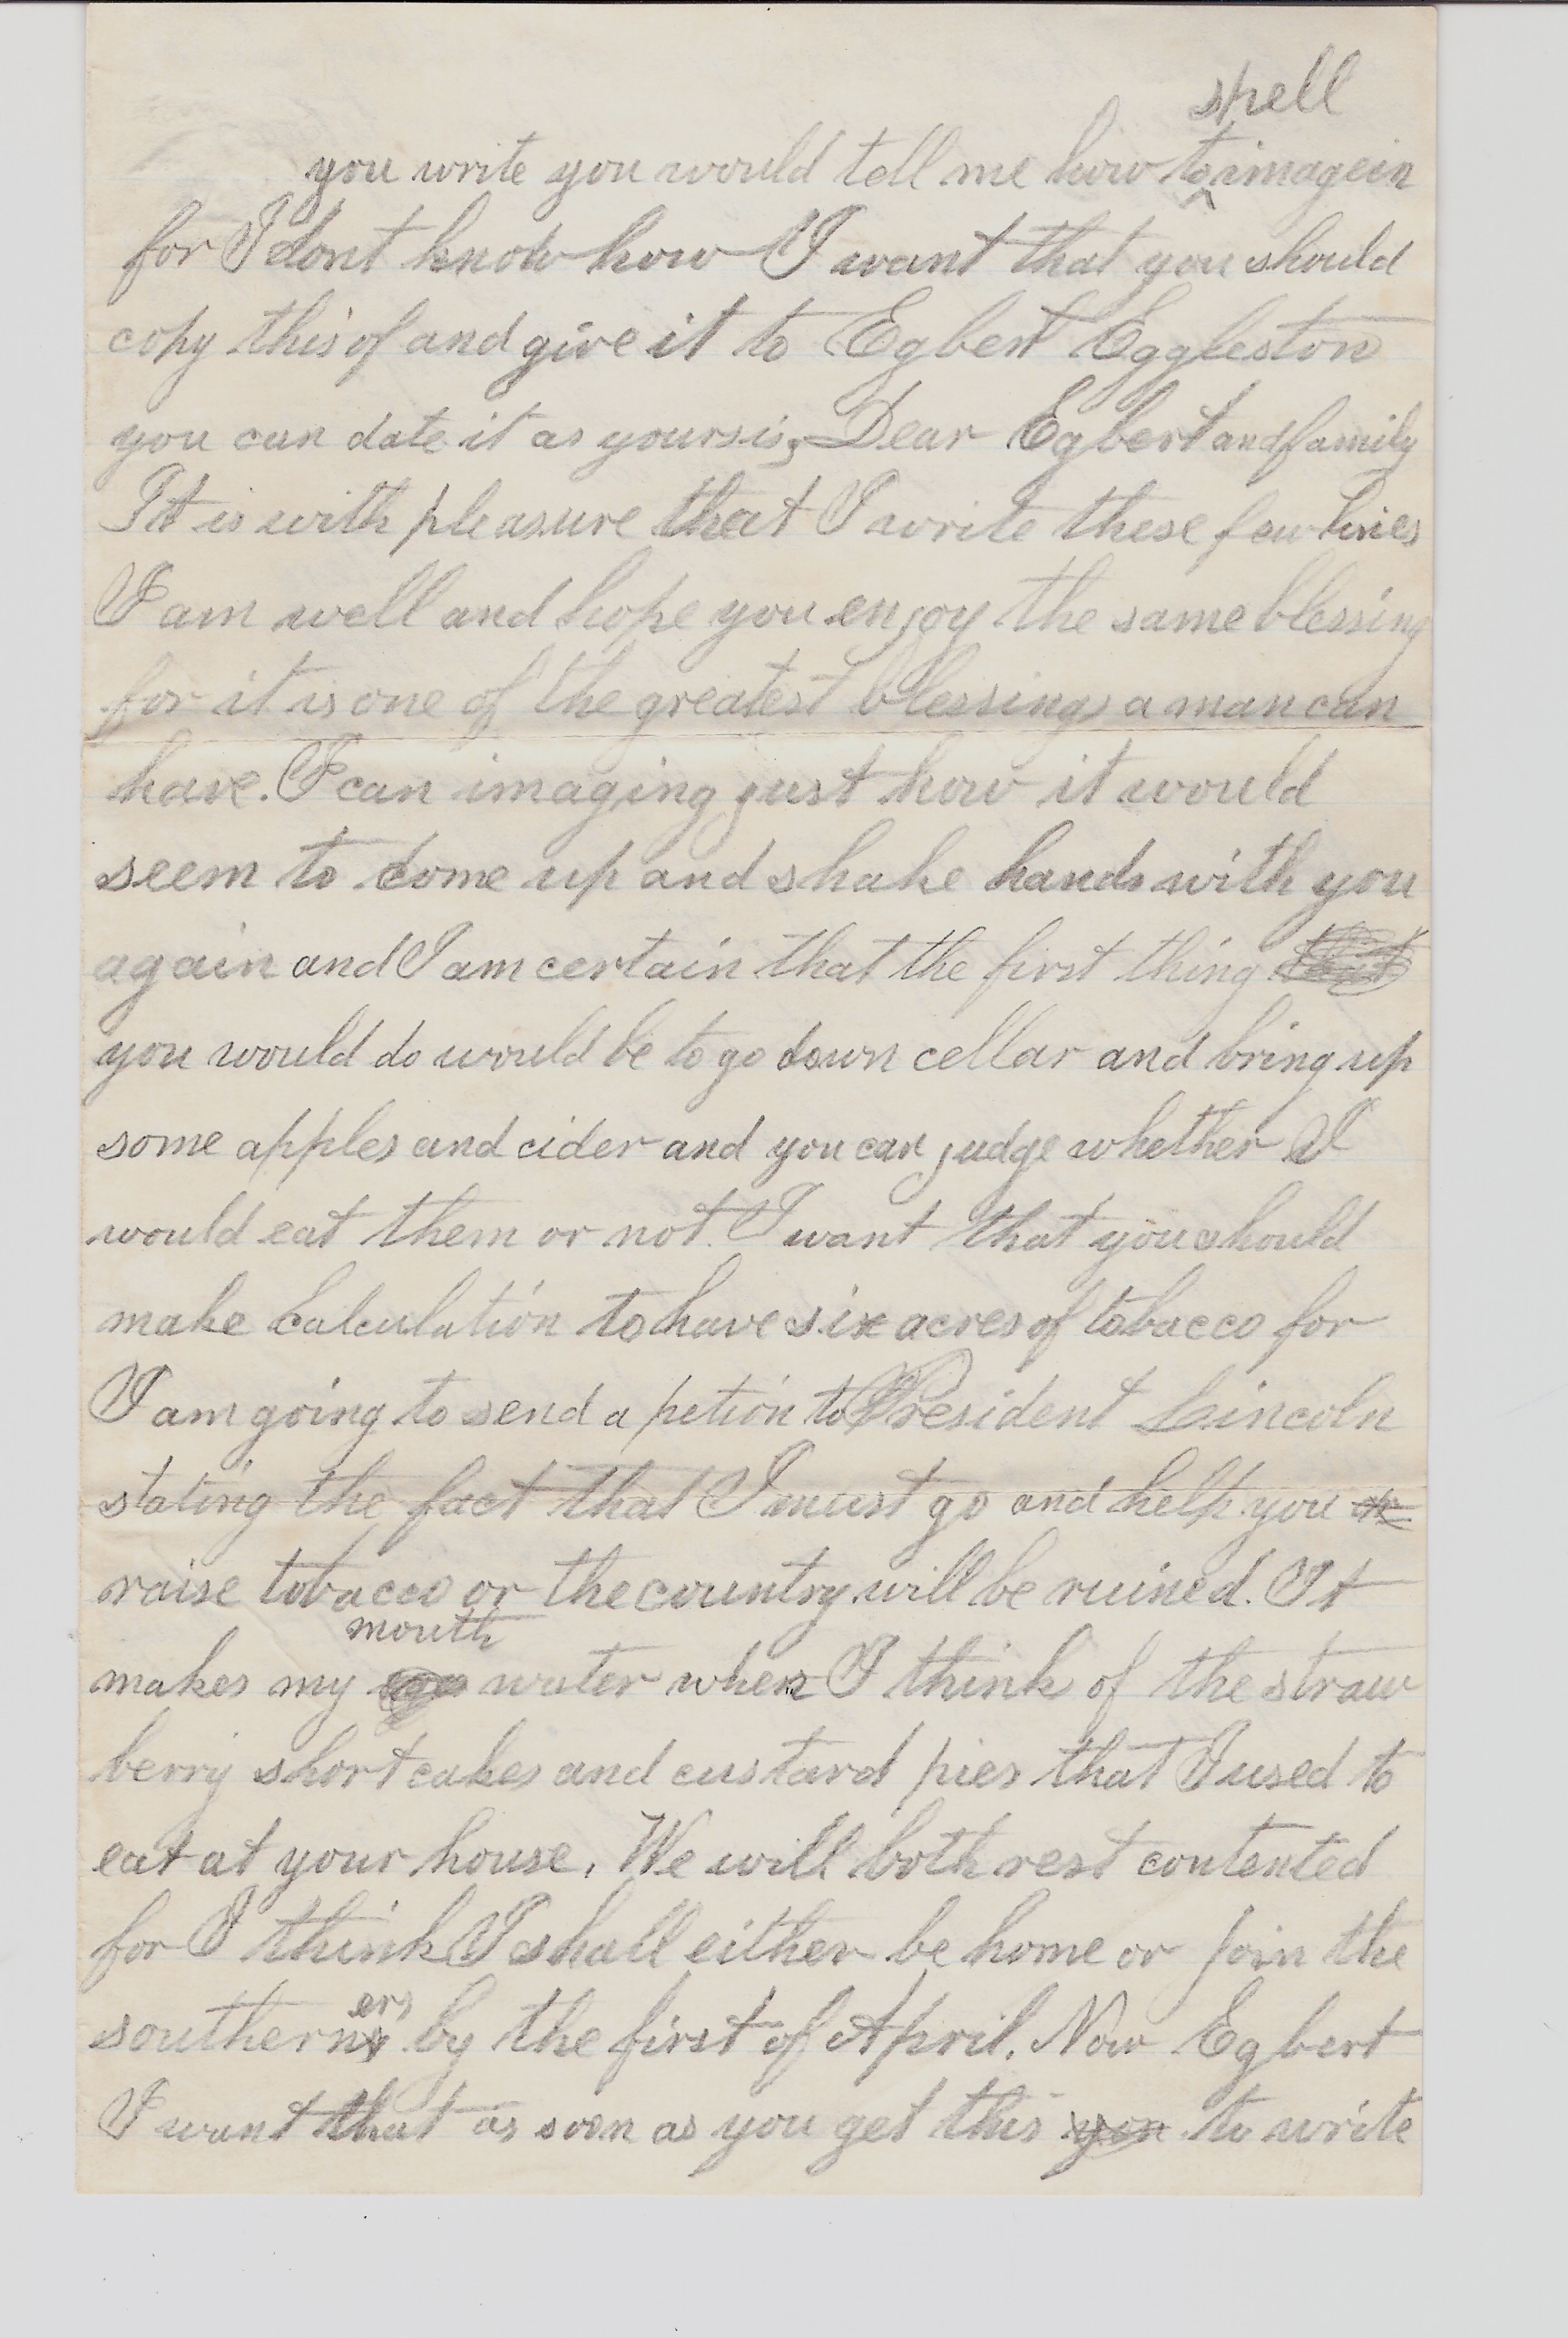 spell
you write you would tell me how to imagein
for I dont know how I want that you should
copy this of and give it to Egbert Eggleston
you can date it as yours is, Dear Egbert and family
It is with pleasure that I write these few lines
I am well and hope you enjoy the same blessing
for it is one of the greatest blessings a man can
have. I can imaging just how it would
seem to come up and shake hands with you
again and I am certain that the first thing that
you would do would be to go down cellar and bring up
some apples and cider and you can judge whether I
would eat them or not. I want that you should
make calculation to have six acres of tobacco for
I am going to send a petion to President Lincoln
stating the fact that I must go and help you or
raise tobacco or the country will be ruined. It
mouth
makes my water when I think of the straw
berry short cakes and custard pies that I used to
eat at your house. We will both rest contented
for I think I shall either be home or join the
ers
southerns by the first of April. Now Egbert
I want that as soon as you get this you to write